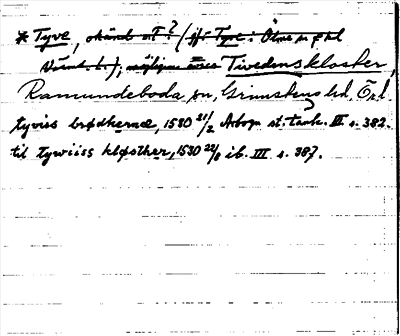 * Tyve, okänd ort? (jfr Tyve: Ölme sn o hd
Värml. l.), möjligen avses Tivedens kloster,
Ramundeboda sn, Grimstens hd, Ö.l.
tyviss brødherne, 1530 21/2 Arboga st:tänk. III s. 382.
til tywiiss kløsther, 1530 22/8 ib. III s. 387.